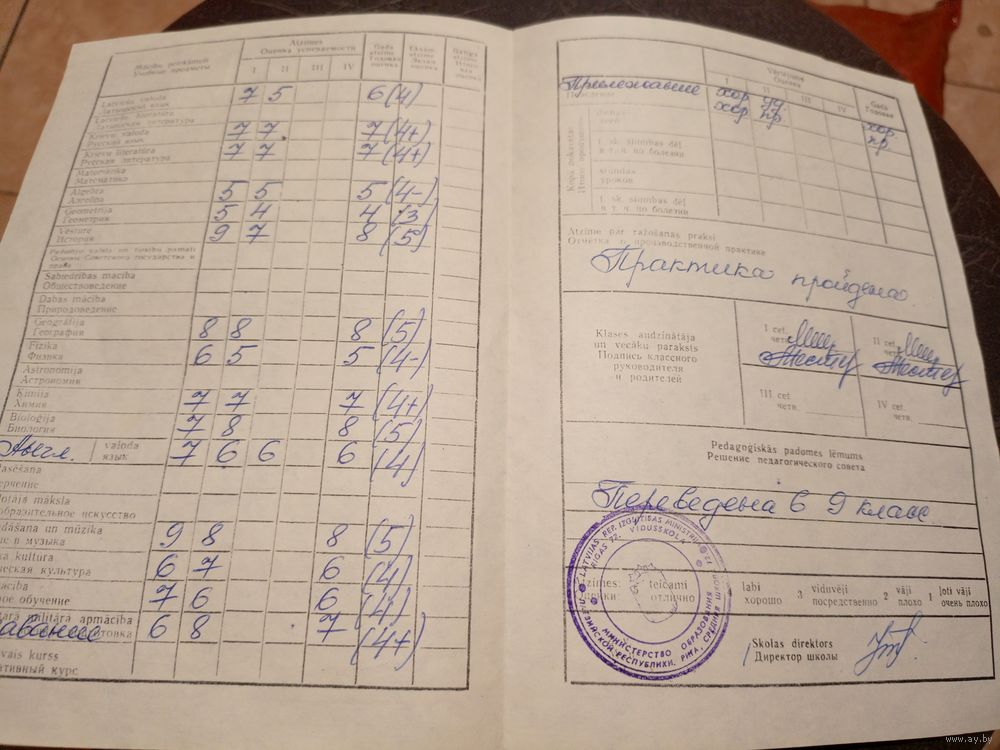 Mācību priekšmeti
Учебные предметы
Atzīmes
Оценка успеваемости
I II III IV
Gada atzīme
Годовая оценка
Latviešu valoda
Латышский язык
7 5 6 (4)
Latviešu literatūra
Латышская литература
Krievu valoda
Русский язык
7 7 7 (4+)
Krievu literatūra
Русская литература
7 7 7 (4+)
Matemātika
Математика
Algebra
Алгебра
5 5 5 (4-)
Ģeometrija
Геометрия
5 4 4 (3
Vēsture
История
9 7 8 (5)
Основы Советского государства и права
Sabiedrības mācība
Обществоведение
Dabas mācība
Природоведение
Ģeogrāfija
География
8 8 8 (5)
Fizika
Физика
6 5 5 (4-)
Astronomija
Астрономия
Ķīmija
Химия
7 7 7 (4+)
Bioloģija
Биология
7 8 8 (5)
Англ. valoda
язык
7 6 6 6 (4)
asēšana
ерчение
otājā māksla
образительное искусство
edāšana un mūzika
ие и музыка
9 8 8 (5)
kā kultūra
ческая культура
6 7 6 (4)
ācība
ное обучение
7 6 6 (4)
ārā militārā apmācība
отовка
6 8 7 (4+)
vais kurss
ативный курс
Прилежание
Vērtējums
Оценка
I II III IV
Gada
Годовая
хор. уд. хор.
хор пр. пр.
Поведение
Kopā nokavēts:
Итого пропущено
dienas
дней
t. sk. slimības dēļ
в т. ч. по болезни
stundas
уроков
t. sk. slimības dēļ
в т. ч. по болезни
Atzīme par ražošanas praksi
Отметка о производственной практике
Практика пройдена.
Klases audzinātāja
un vecāku paraksts
Подпись классного
руководителя
и родителей
I cet.
четв.
II cet.
четв.
III cet.
четв.
IV cet.
четв.
Pedagoģiskās padomes lēmums
Решение педагогического совета
Переведена в 9 класс
LATVIJAS REP. IZGLĪTĪBAS MINISTRIJA
RĪGAS 72. VIDUSSKOLA
МИНИСТЕРСТВО ОБРАЗОВАНИЯ
ЛАТВИЙСКОЙ РЕСПУБЛИКИ, РИГА, СРЕДНЯЯ ШКОЛА
Atzīmes: 5 teicami отлично
4 labi хорошо
3 viduvēji посредственно
2 vāji плохо
1 ļoti vāji очень плохо
Skolas direktors
Директор школы
www.ay.by